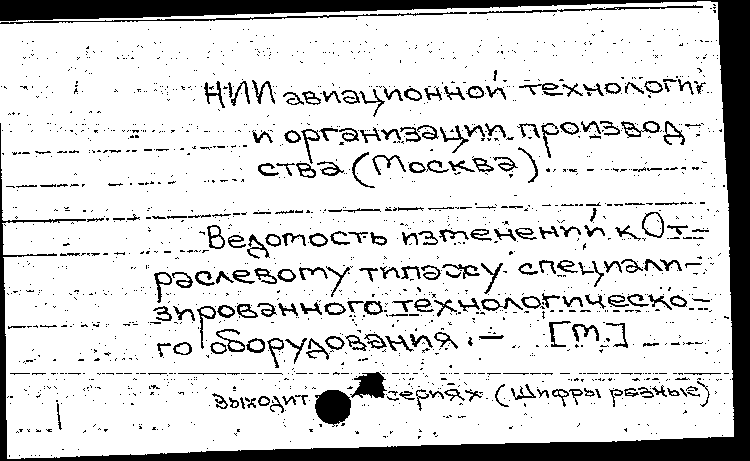 НИИ авиационной технологии
и организации производ-
ства (Москва).
Ведомость изменений к От-
раслевому типажу специали-
зированного технологическо-
го оборудования. — [М.]
выходит сериях (Шифры разные)